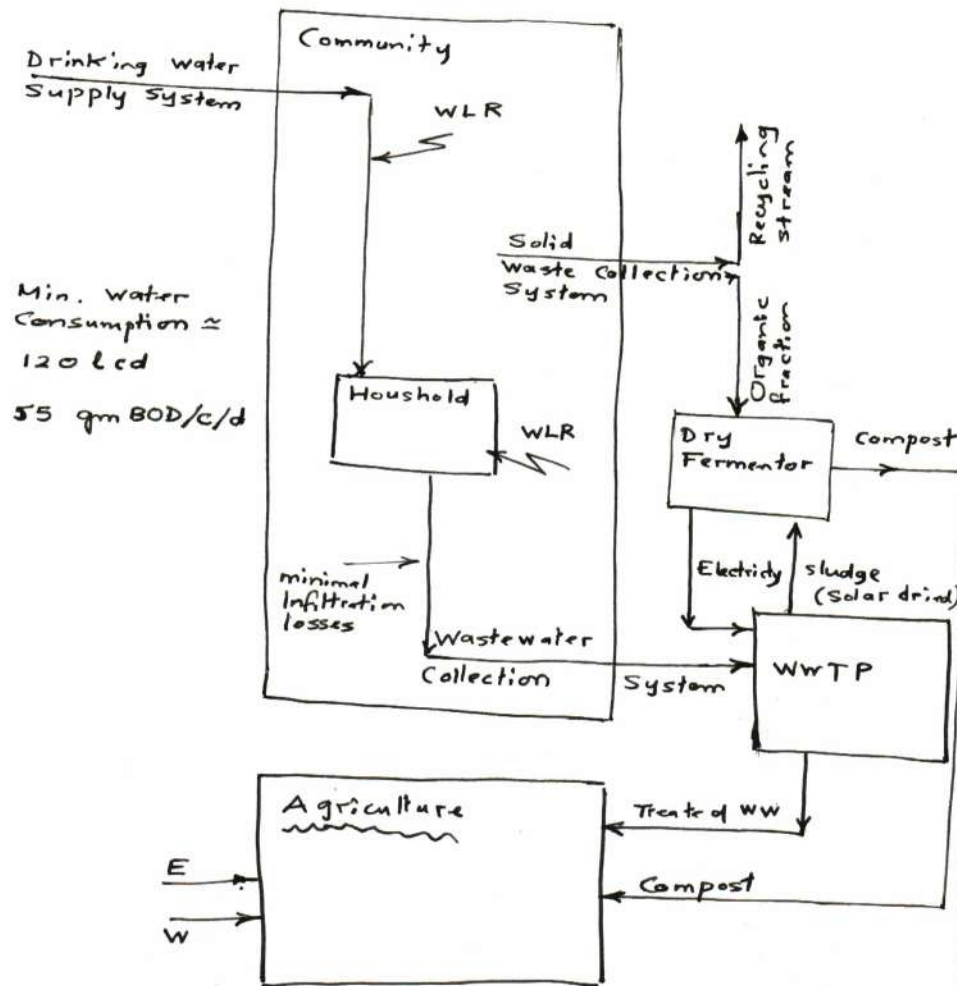 Community
Drinking water
Supply System
WLR
Recycling
stream
Solid
Waste Collection
System
Min. water
Consumption ≃
120 lcd
55 gm BOD/c/d
Organic
fraction
Houshold
WLR
Dry
Fermentor
Compost
minimal
Infiltration
losses
Electricity
sludge
(Solar dried)
Wastewater
Collection System
WWTP
Agriculture
Treated WW
E
W
Compost